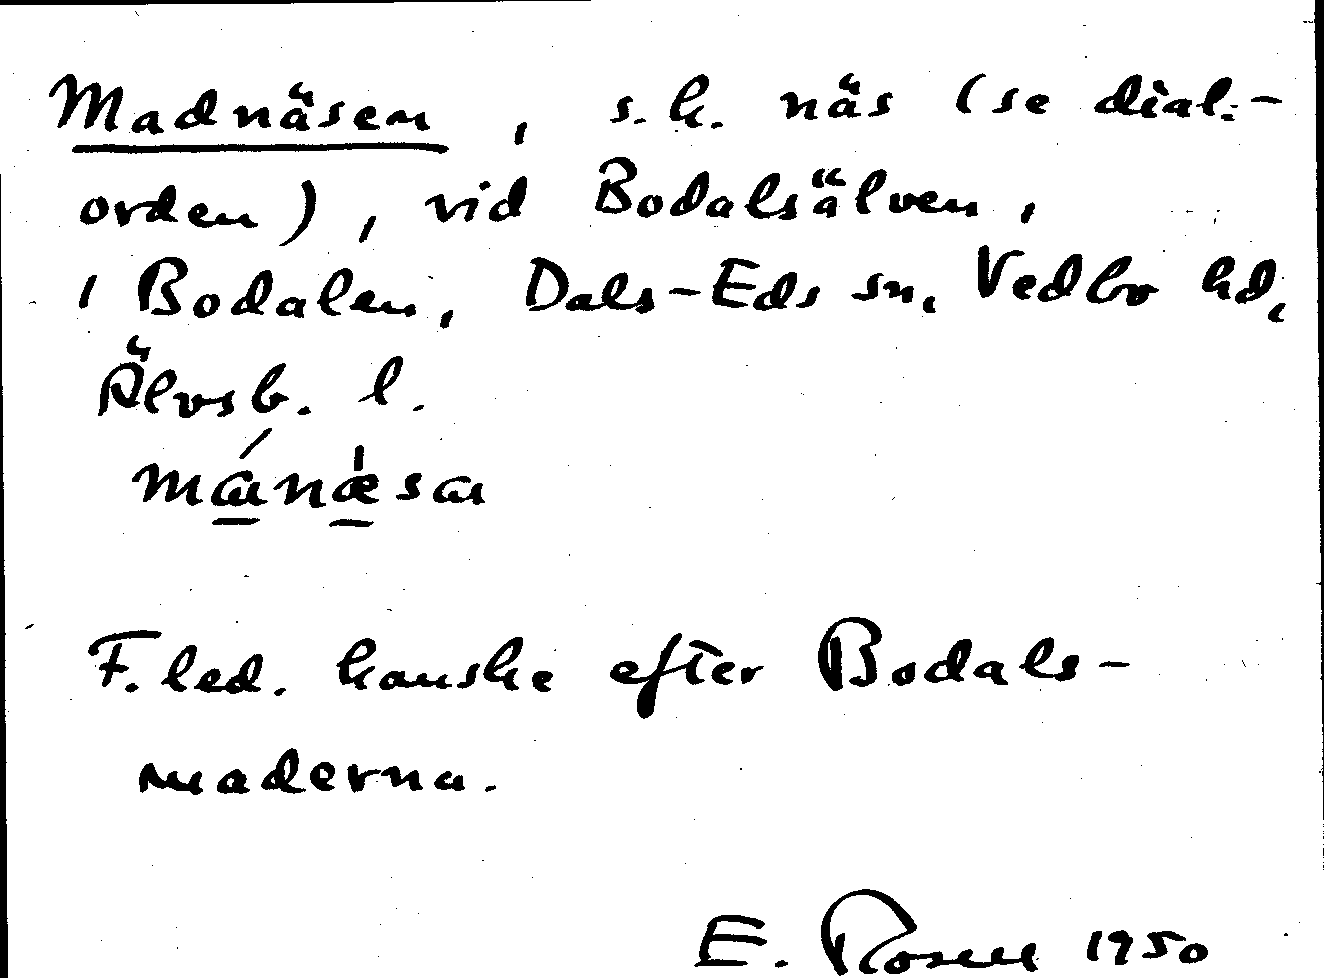 Madnäsen, s.k. näs (se dial.-
orden), vid Bodalsälven,
i Bodalen, Dals-Eds sn, Vedbo hd,
Älvsb. l.
mánæ̀sa
F. led. kanske efter Bodals-
maderna.
E. Rosell 1950